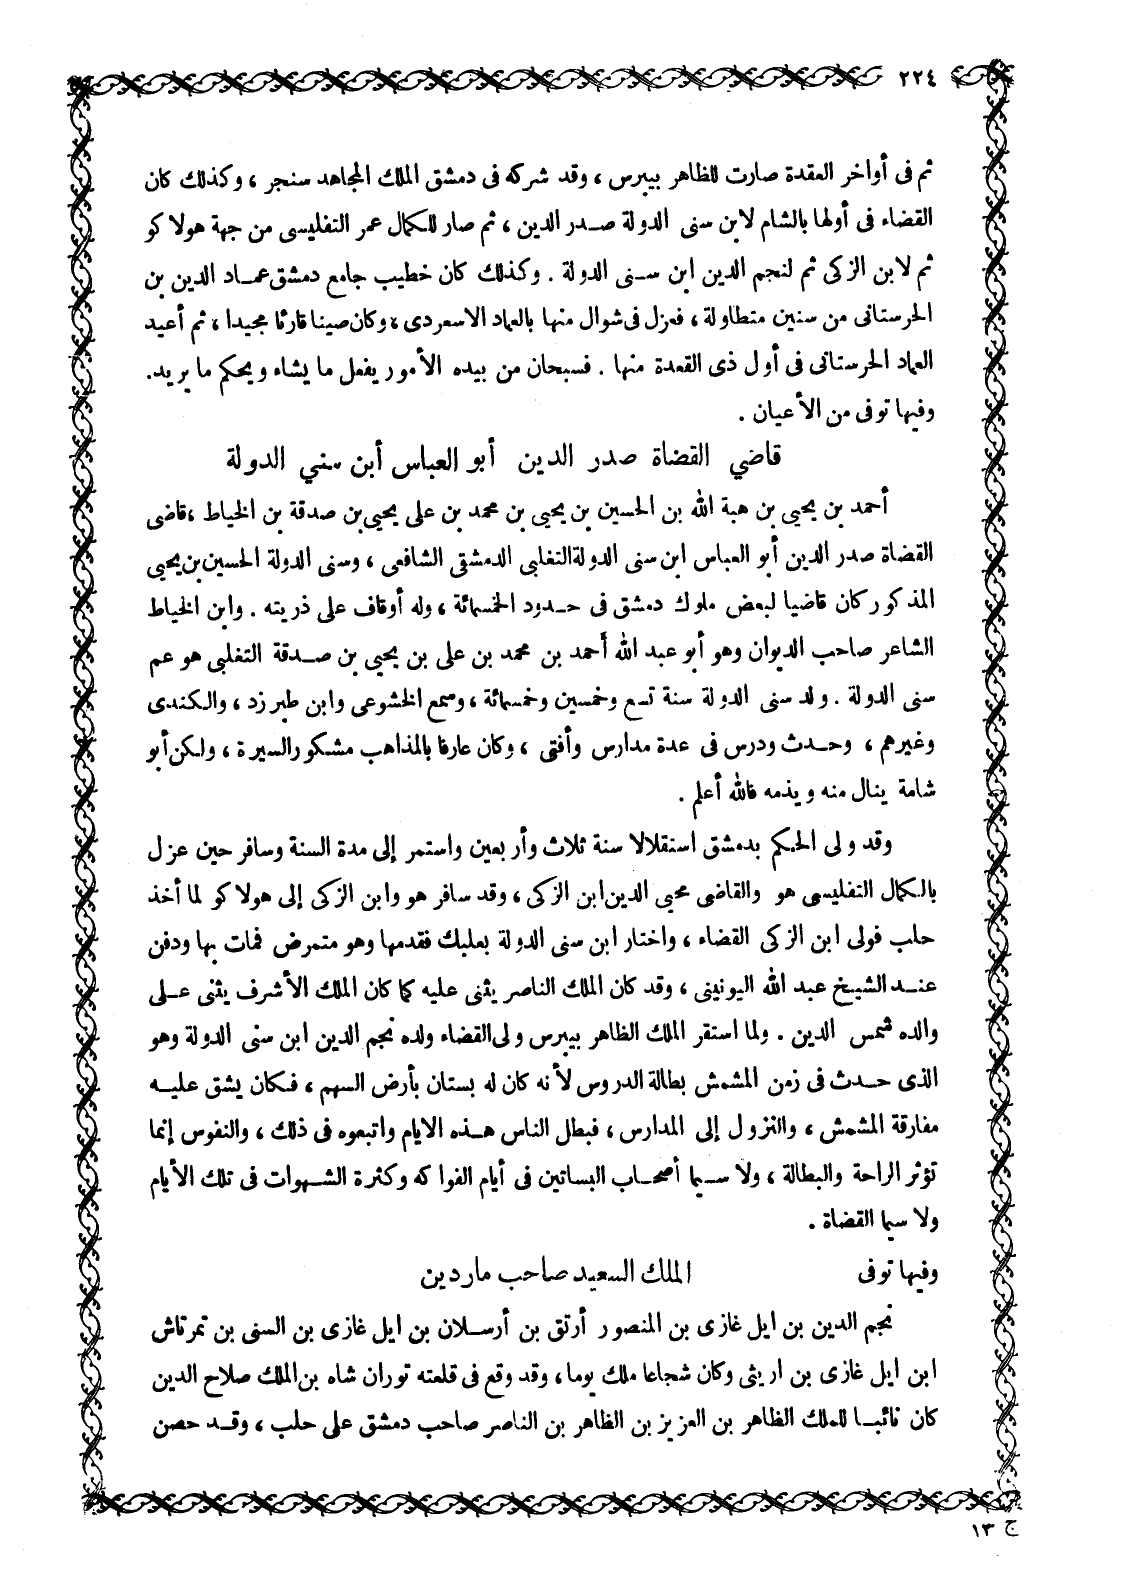 ٢٢٤
ثم فى أواخر العقدة صارت للظاهر بيبرس ، وقد شركه فى دمشق الملك المجاهد سنجر ، وكذلك كان
القضاء فى أولها بالشام لابن سنى الدولة صدر الدين ، ثم صار للكمال عمر التفليسى من جهة هولاكو
ثم لابن الزكى ثم لنجم الدين ابن سنى الدولة . وكذلك كان خطيب جامع دمشق عماد الدين بن
الحرستانى من سنين متطاولة ، فعزل فى شوال منها بالعماد الاسعردى ، وكان صينا قارئا مجيدا ، ثم أعيد
العماد الحرستانى فى أول ذى القعدة منها . فسبحان من بيده الأمور يفعل ما يشاء ويحكم ما يريد.
وفيها توفى من الأعيان .
قاضي القضاة صدر الدين أبو العباس أبن سني الدولة
أحمد بن يحيى بن هبة الله بن الحسين بن يحيى بن محمد بن على يحيى بن صدقة بن الخياط ، قاضى
القضاة صدر الدين أبو العباس ابن سنى الدولة التغلبى الدمشقى الشافعى ، وسنى الدولة الحسين بن يحيى
المذكور كان قاضيا لبعض ملوك دمشق فى حدود الخمسمائة ، وله أوقاف على ذريته . وابن الخياط
الشاعر صاحب الديوان وهو أبو عبد الله أحمد بن محمد بن على بن يحيى بن صدقة التغلبى هو عم
سنى الدولة . ولد سنى الدولة سنة تسع وخمسين وخمسمائة ، وسمع الخشوعى وابن طبرزد ، والكندى
وغيرهم ، وحدث ودرس فى عدة مدارس وأفتى ، وكان عارفا بالمذاهب مشكور السيرة ، ولكن أبو
شامة ينال منه ويذمه فالله أعلم .
وقد ولى الحكم بدمشق استقلالا سنة ثلاث وأربعين واستمر إلى مدة السنة وسافر حين عزل
بالكمال التفليسى هو والقاضى محيى الدين ابن الزكى ، وقد سافر هو وابن الزكى إلى هولاكو لما أخذ
حلب فولى ابن الزكى القضاء ، واختار ابن سنى الدولة بعلبك فقدمها وهو متمرض فمات بها ودفن
عند الشيخ عبد الله اليونينى ، وقد كان الملك الناصر يثنى عليه كما كان الملك الأشرف يثنى على
والده شمس الدين . ولما استقر الملك الظاهر بيبرس ولى القضاء ولده نجم الدين ابن سنى الدولة وهو
الذى حدث فى زمن المشمش بطالة الدروس لأنه كان له بستان بأرض السهم ، فكان يشق عليه
مفارقة المشمش ، والنزول إلى المدارس ، فبطل الناس هذه الايام واتبعوه فى ذلك ، والنفوس إنما
تؤثر الراحة والبطالة ، ولا سيما أصحاب البساتين فى أيام الفواكه وكثرة الشهوات فى تلك الأيام
ولا سيما القضاة .
وفيها توفى الملك السعيد صاحب ماردين
نجم الدين بن ايل غازى بن المنصور أرتق بن أرسلان بن ايل غازى بن السنى بن تمرتاش
ابن ايل غازى بن اريثى وكان شجاعا ملك يوما ، وقد وقع فى قلعته توران شاه بن الملك صلاح الدين
كان نائبا للملك الظاهر بن العزيز بن الظاهر بن الناصر صاحب دمشق على حلب ، وقد حصن
ج ١٣